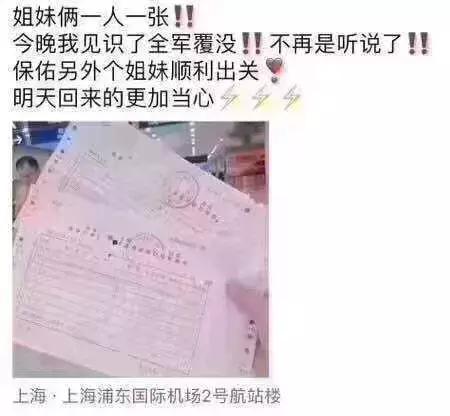 姐妹俩一人一张‼️
今晚我见识了全军覆没‼️不再是听说了‼️
保佑另外个姐妹顺利出关❣️
明天回来的更加当心⚡⚡⚡
上海·上海浦东国际机场2号航站楼